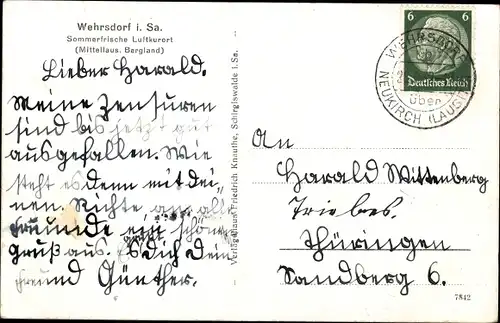 Wehrsdorf i. Sa.
Sommerfrische Luftkurort
(Mittellaus. Bergland)
Lieber Harald.
Meine Zensuren
sind bis jetzt gut
ausgefallen. Wie
steht es denn mit dei-
nen. Richte an alle
Freunde ein schönen
Gruß aus. Es Dich Dein
Freund Günther.
Verlagshaus Friedrich Knauthe, Schirgiswalde i. Sa.
6 6
Deutsches Reich
WEHRSDORF
über
NEUKIRCH (LAUSITZ)
An
Harald Wittenberg
Triebes.
Thüringen
Sandberg 6.
7842